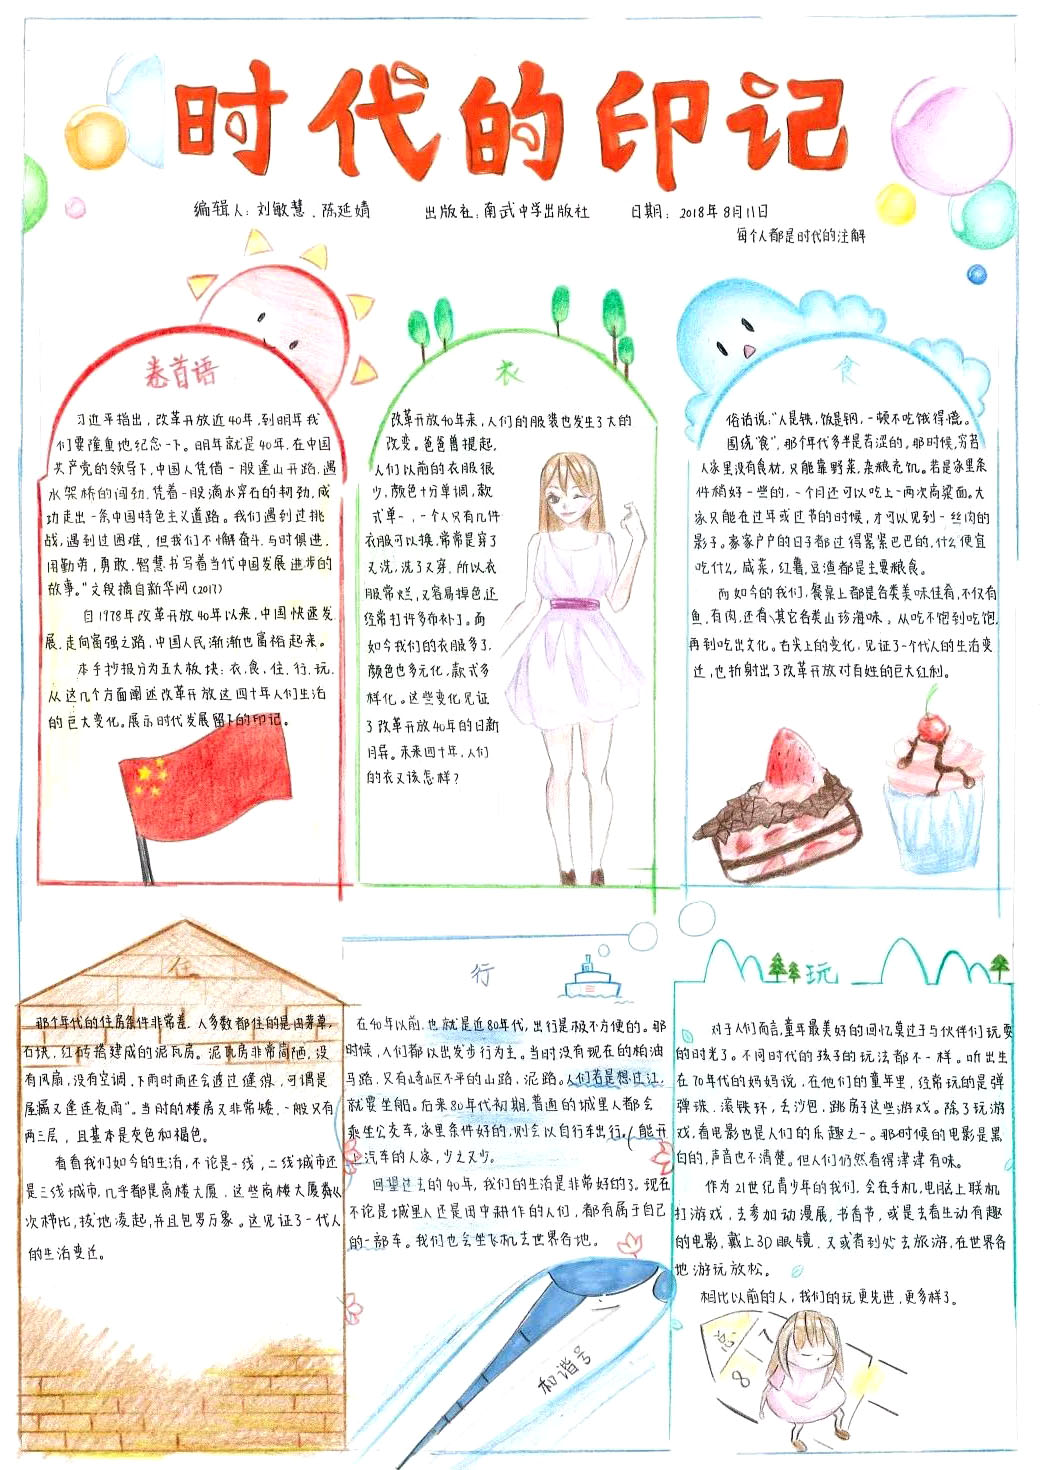 时代的印记
编辑人:刘敏慧、陈延婧 出版社:南武中学出版社 日期:2018年8月11日
每个人都是时代的注解
卷首语
习近平指出,改革开放近40年,到明年我
们要隆重地纪念一下。明年就是40年,在中国
共产党的领导下,中国人凭借一股逢山开路,遇
水架桥的闯劲,凭着一股滴水穿石的韧劲,成
功走出一条中国特色主义道路。我们遇到过挑
战,遇到过困难,但我们不懈奋斗,与时俱进,
用勤劳,勇敢,智慧书写着当代中国发展进步的
故事。”文段摘自新华网(2017)
自1978年改革开放40年以来,中国快速发
展,走向富强之路,中国人民渐渐也富裕起来。
本手抄报分为五大板块:衣、食、住、行、玩,
从这几个方面阐述改革开放这四十年人们生活
的巨大变化。展示时代发展留下的印记。
衣
改革开放40年来,人们的服装也发生了大的
改变。爸爸曾提起,
人们以前的衣服很
少,颜色十分单调,款
式单一,一个人只有几件
衣服可以换,常常是穿了
又洗,洗了又穿,所以衣
服常烂,又容易掉色,还
经常打许多布补丁。而
如今我们的衣服多了,
颜色也多元化,款式多
样化。这些变化见证
了改革开放40年的日新
月异。未来四十年,人们
的衣又该怎样?
食
俗话说:“人是铁,饭是钢,一顿不吃饿得慌。
围绕“食”,那个年代多半是苦涩的,那时候,穷苦
人家里没有食材,只能靠野菜,杂粮充饥。若是家里条
件稍好一些的,一个月还可以吃上一两次高粱面。大
家只能在过年或过节的时候,才可以见到一丝肉的
影子。家家户户的日子都过得紧紧巴巴的,什么便宜
吃什么,咸菜,红薯,豆渣都是主要粮食。
而如今的我们,餐桌上都是各类美味佳肴,不仅有
鱼,有肉,还有其它各类山珍海味。从吃不饱到吃饱,
再到吃出文化。舌尖上的变化,见证了一个代人的生活变
迁,也折射出了改革开放对百姓的巨大红利。
住
那个年代的住房条件非常差,人多数都住的是由茅草,
石块,红砖搭建成的泥瓦房。泥瓦房非常简陋,没
有风扇,没有空调,下雨时雨还会渡过缝级,可谓是
屋漏又逢连夜雨”。当时的楼房又非常矮,一般只有
两三层,且基本是灰色和褐色。
看看我们如今的生活,不论是一线,二线城市还
是三线城市,几乎都是高楼大厦,这些高楼大厦
次栉比,拔地凌起,并且包罗万象。这见证了一代人
的生活变迁。
行
在40年以前,也就是近80年代,出行是极不方便的。那
时候,人们都以出发步行为主。当时没有现在的柏油
马路,只有崎岖不平的山路,泥路。人们若是想过江,
就要坐船。后来80年代初期,普通的城里人都会
乘坐公交车,家里条件好的,则会以自行车出行,(能开
上汽车的人家,少之又少。
回望过去的40年,我们的生活是非常好的了。现在
不论是城里人还是田中耕作的人们,都有属于自己
的一部车。我们也会坐飞机去世界各地。
和谐号
玩
对于人们而言,童年最美好的回忆莫过于与伙伴们玩耍
的时光了。不同时代的孩子的玩法都不一样。听出生
在70年代的妈妈说,在他们的童年里,经常玩的是弹
弹珠,滚铁环,丢沙包,跳房子这些游戏。除了玩游
戏,看电影也是人们的乐趣之一。那时候的电影是黑
白的,声音也不清楚。但人们仍然看得津津有味。
作为21世纪青少年的我们,会在手机,电脑上联机
打游戏,去参加动漫展,书香节,或是去看生动有趣
的电影,戴上3D眼镜,又或者到处去旅游,在世界各
地游玩放松。
相比以前的人,我们的玩更先进,更多样了。
7
8